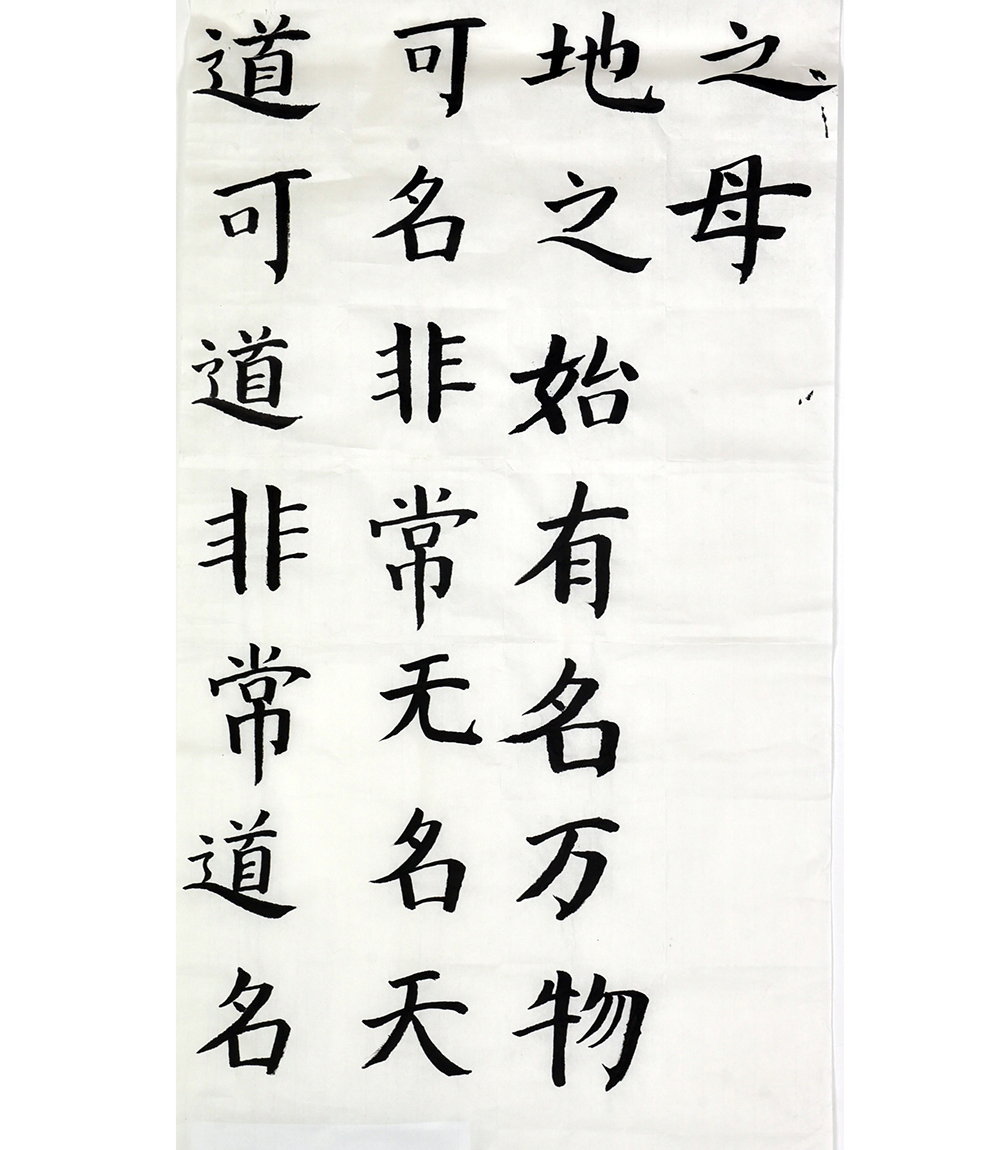 道可道非常道名
可名非常无名天
地之始有名万物
之母